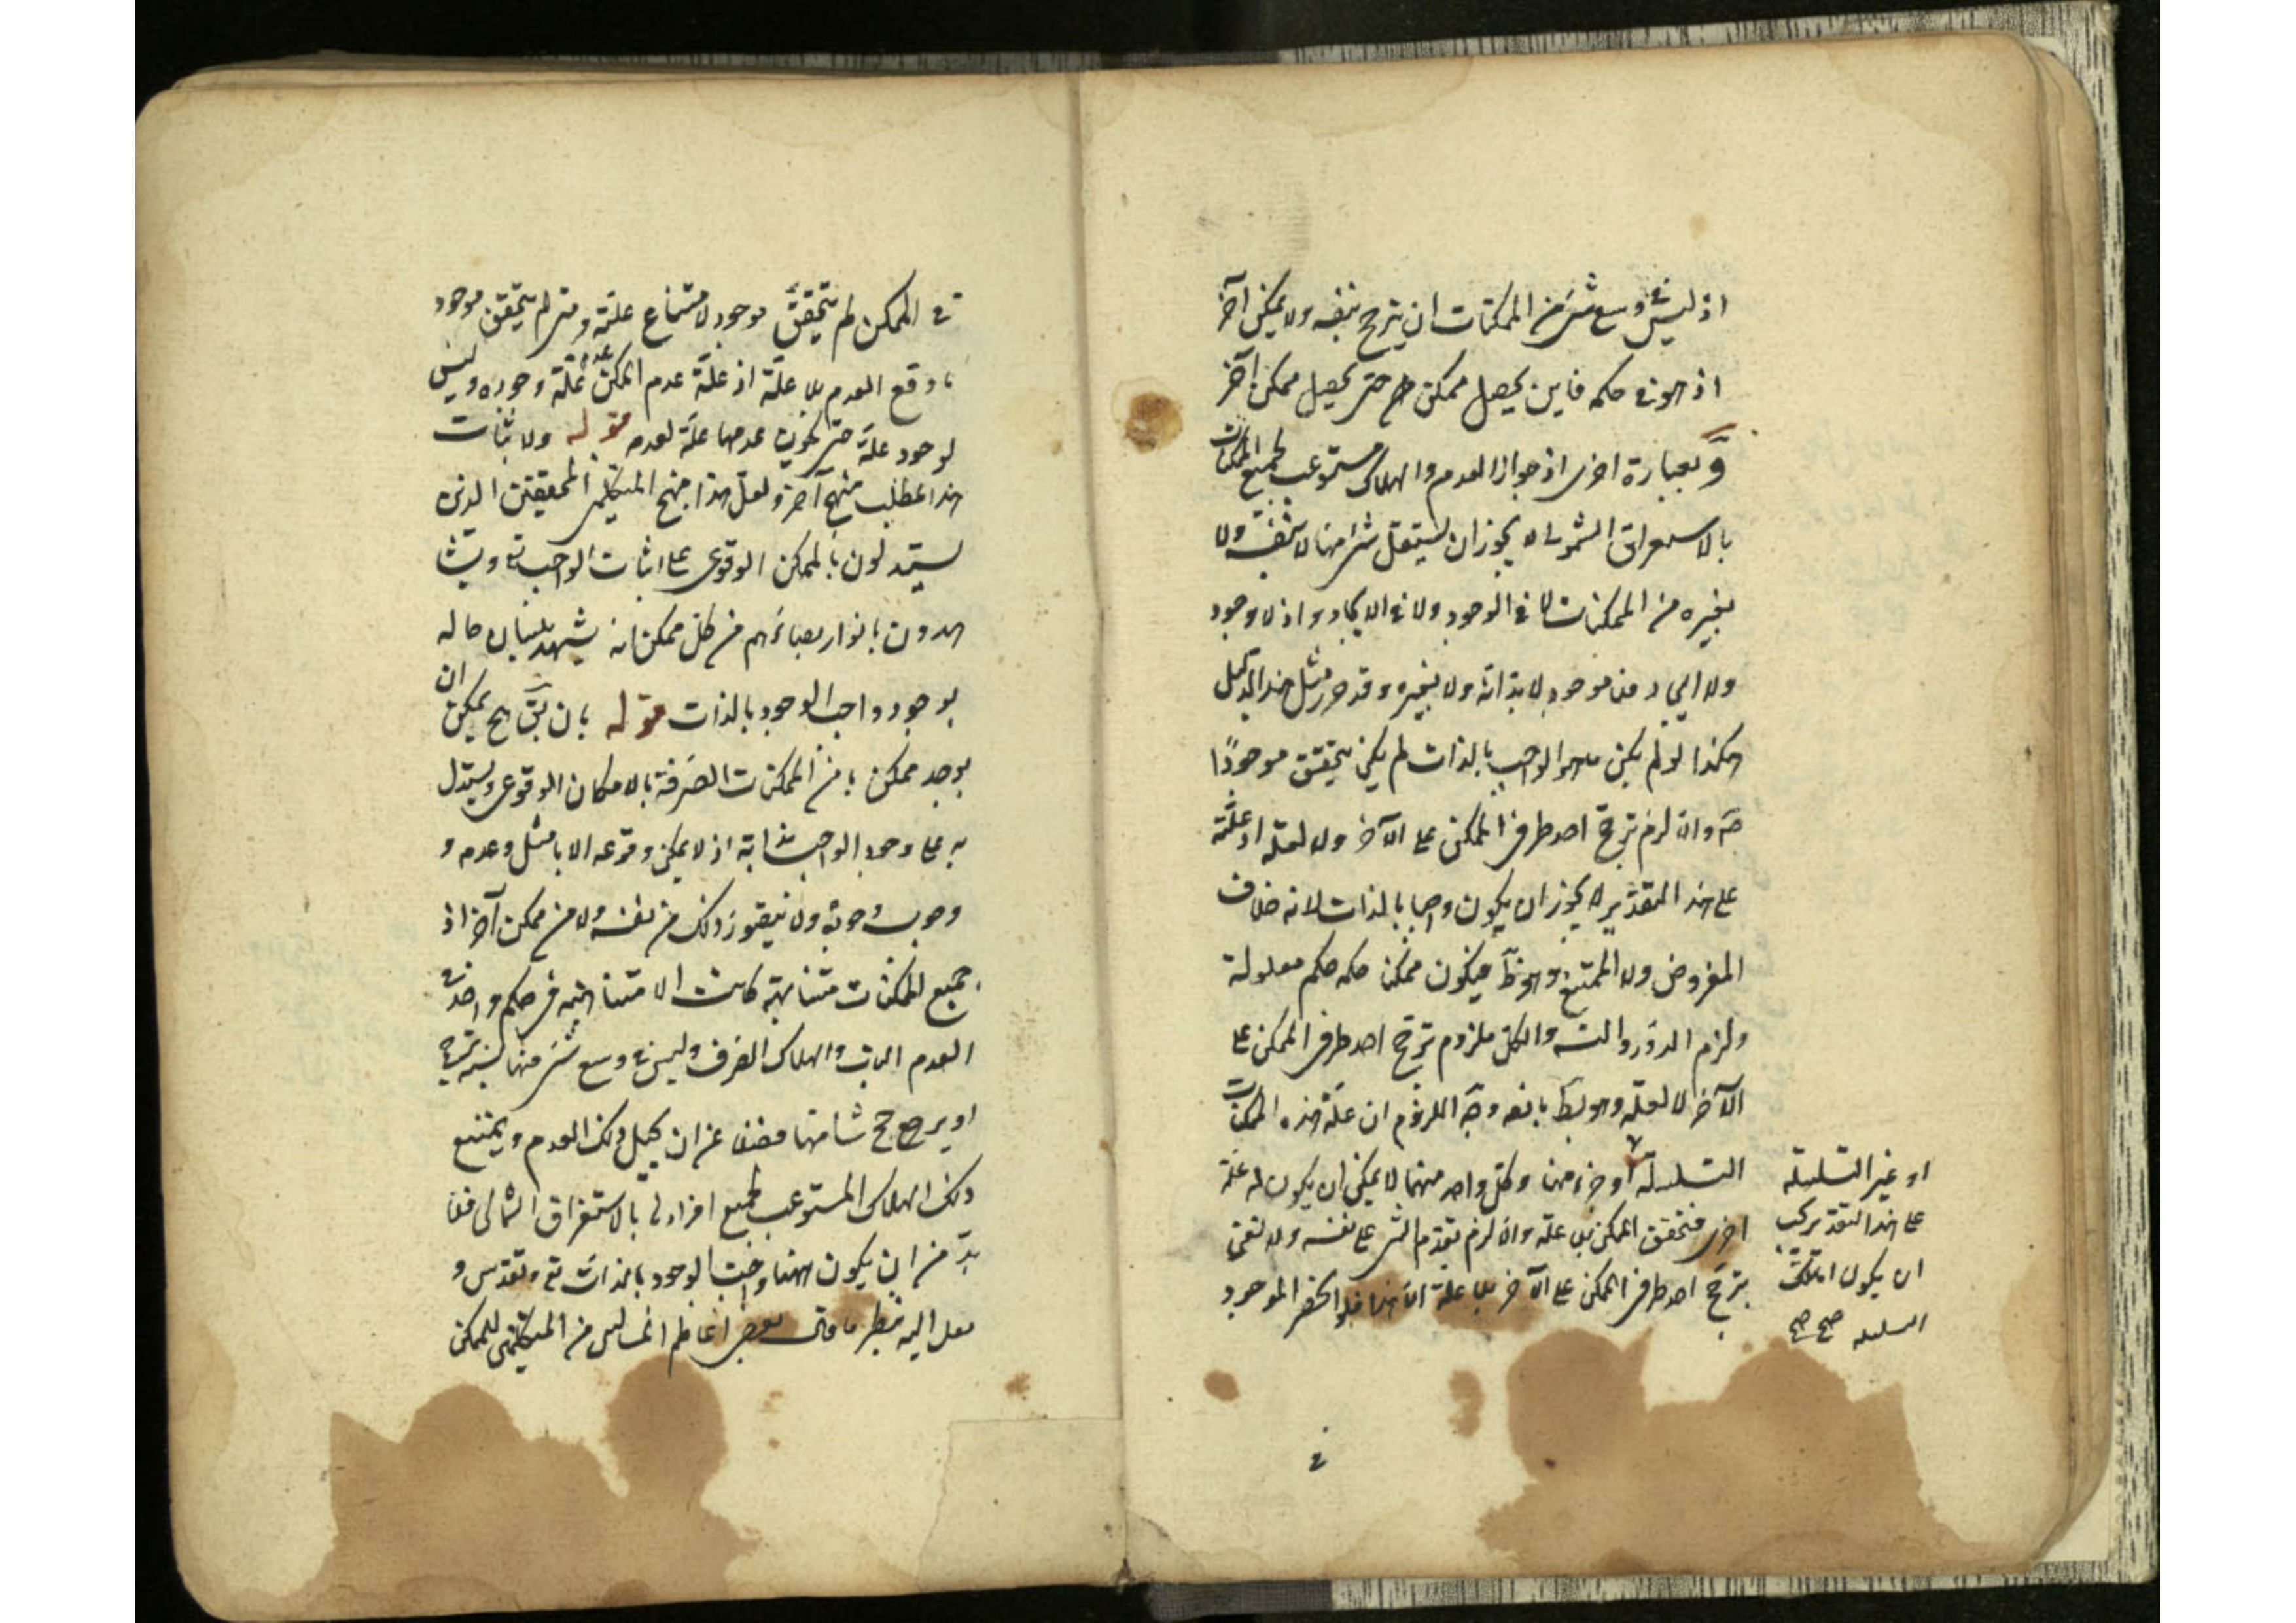 اذ ليس في وسع شئ من الممكنات ان يترجح بنفسه ولا بممكن آخر
اذ هو في حكمه فاين يحصل ممكن حتى يحصل ممكن آخر
وبعبارة اخرى اذ جواز العدم والهلاك مستوعب لجميع الممكنات
بالاستغراق الشمولي لا يجوز ان يستقل شئ منها لا بنفسه ولا
بغيره من الممكنات لا في الوجود ولا في الايجاد واذ لا وجود
ولا ايجاد فلا موجود لا بذاته ولا بغيره وقد حرر مثل هذا الدليل
هكذا لو لم يكن الواجب بالذات لم يكن يتحقق موجودًا
والا لزم ترجح احد طرفي الممكن على الآخر ولا لعلة اذ علته
على هذا التقدير لا يجوز ان يكون واجبا بالذات لانه خلاف
المفروض ولا الممتنع وهو ظ فيكون ممكن حكمه حكم معلوله
ولزم الدور والتسـ والكل ملزوم ترجح احد طرفي الممكن على
الآخر لا لعلة وهو بط وجه اللزوم ان علة هذه الممكنات
السلسلة او جزء منها وكل واحد منهما لا يمكن ان يكون له علة
اخرى فتحقق الممكن بلا علة والا لزم تقدم الشئ على نفسه ولا نعني
بترجح احد طرفي الممكن على الآخر بلا علة الا هذا فلو انحصر الموجود
او غير السلسلة
على هذا التقدير يجب
ان يكون
السلسلة صح صح
في
في الممكن لم يتحقق موجود لامتناع علته ومتى لم يتحقق موجود
وقع العدم بلا علة اذ علة عدم الممكن عدم علة وجوده وليس
لوجود علة حتى يكون عدمها علة لعدمه قوله ولاثبات
هذا المطلب منهج آخر ولعل هذا منهج المتكلمين المحققين الذين
يستدلون بالممكن الوقوعي على اثبات الواجب تع ويشا
هدون بانوار بصائرهم من كل ممكن انه يشهد بلسان حاله
بوجود واجب الوجود بالذات قوله بان يق ح يمكن ان
يوجد ممكن ما من الممكنات الصرفة بالامكان الوقوعي ويستدل
به على وجود الواجب بذاته اذ لا يمكن وقوعه الا عدمه و
وجوب وجوده ولا يتصور ذلك من نفسه ولا من ممكن آخر اذ
جميع الممكنات متناهية كانت او لا متناهية في حكم واحد في
العدم البات والهلاك الصرف وليس في وسع شئ منها
او يرجح شيئا منها فضلا عن ان يحيل ذلك العدم ويمتنع
ذلك الهلاك المستوعب لجميع افراده بالاستغراق الشمالي فلا
بد من ان يكون ههنا واجب الوجود بالذات تع وتقدس و
لعل اليه ينظر ما قال بعض اعاظم الناس من المتكلمين للممكن